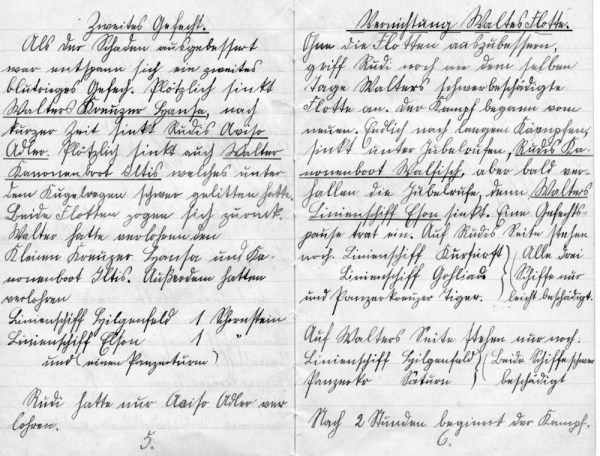 Zweites Gefecht.
Als der Schaden ausgebessert
war entspann sich ein zweites
blutieges Gefech. Plötzlich sinkt
Walters Kreuzer Hansa, nach
kurzer Zeit sinkt Rudis Aviso
Adler. Plötzlich sinkt auch Walter
Kanonenboot Iltis welches unter
dem Kugelregen schwer gelitten hatte.
Beide Flotten zogen sich zurück.
Walter hatte verlohren den
Kleinen Kreuzer Hansa und Ka-
nonenboot Iltis. Außerdem hatten
verlohren
Linienschiff Hilgenfeld 1 Schornstein
Linienschiff Elson 1
und (einen Panzerturm)
Rudi hatte nur Aviso Adler ver
lohren.
5.
Vernichtung Waltes Flotte.
Ohne die Flotten auszubessern,
griff Rudi noch an dem selben
Tage Walters schwerbeschädigte
Flotte an. Der Kampf begann vom
neuen. Endlich nach langem Kämpfen,
sinkt unter Jubelrufen, Rudis Ka-
nonenboot Walfisch, aber bald ver-
hallen die Jubelrufe, denn Walters
Linienschiff Elson sinkt. Eine Gefechts-
pause trat ein. Auf Rudis Seite stehen
noch. Linienschiff Kurfürst } Alle drei
Linienschiff Gohliad } Schiffe nur
und Panzerkreuzer Tiger. } leicht beschädigt.
Auf Walters Seite stehen nur noch:
Linienschiff Hilgenfeld } Beide Schiffe schwer
Panzerkr Saturn } beschädigt
Nach 2 Stunden beginnt der Kampf.
6.